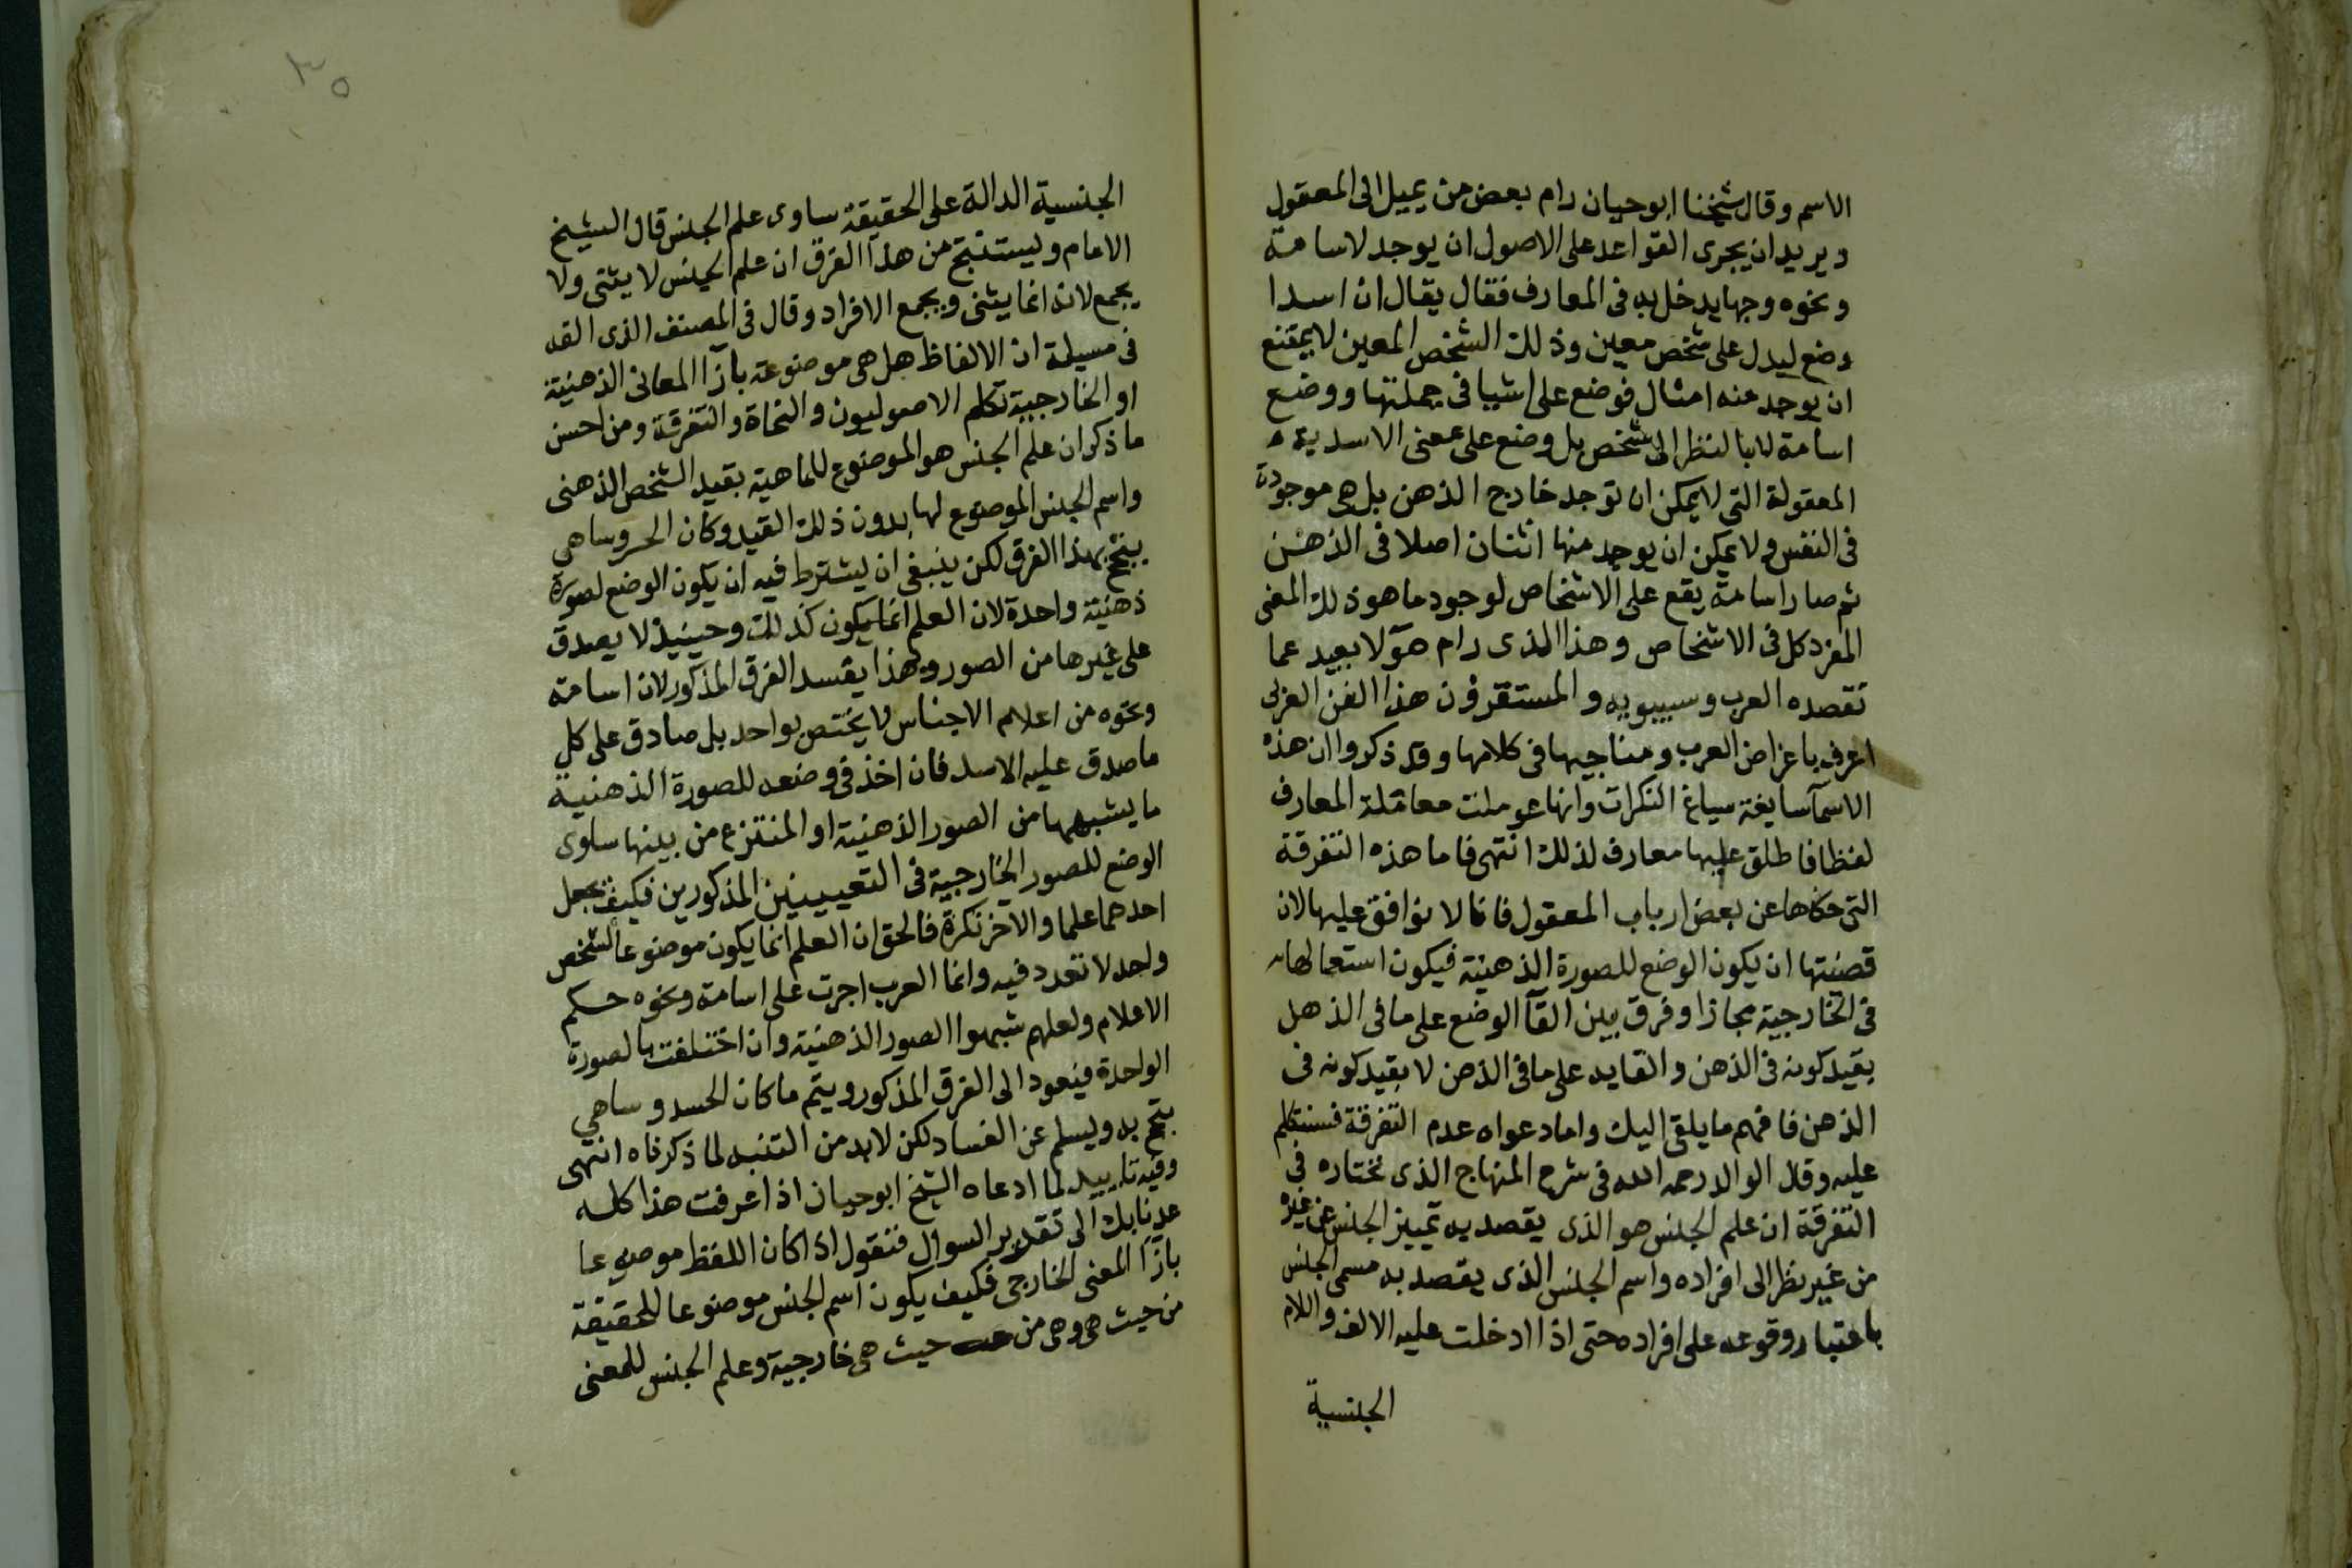 الاسم وقال شيخنا ابوحيان رام بعض من يميل الى المعقول
ويريد ان يجرى القواعد على الاصول ان يوجد لاسامة
ونحوه وجها يدخل به فى المعارف فقال يقال ان اسدا
وضع ليدل على شخص معين وذلك الشخص المعين لا يمتنع
ان يوجد منه امثال فوضع على اشيا فى جملتها ووضع
اسامة لا بالنظر الى شخص بل وضع على معنى الاسدية
المعقولة التى لا يمكن ان توجد خارج الذهن بل هى موجودة
فى النفس ولا يمكن ان يوجد منها اثنان اصلا فى الذهن
ثم صار اسامة يقع على الاشخاص لوجود ماهو ذلك المعنى
المفرد كل فى الاشخاص وهذا الذى رام هولا بعيد عما
تقصده العرب وسيبويه والمستقرون هذا الفن العزلى
اعرف باغراض العرب ومناحيها فى كلامها وقد ذكروا ان هذه
الاسما سايغة سياغ النكرات وانها عوملت معاملة المعارف
لفظا فاطلق عليها معارف لذلك انتهى فاما هذه التفرقة
التى حكاها عن بعض ارباب المعقول فانا لا نوافق عليها لان
قضيتها ان يكون الوضع للصورة الذهنية فيكون استعمالها
فى الخارجية مجازا وفرق بين القآ الوضع على ما فى الذهل
بقيد كونه فى الذهن والقايه على ما فى الذهن لا بقيد كونه فى
الذهن فافهم ما يلقى اليك واما دعواه عدم التفرقة فسنتكلم
عليه وقال الوالد رحمه الله فى شرح المنهاج الذى نختاره فى
التفرقة ان علم الجنس هو الذى يقصد به تمييز الجنس عن غيره
من غير نظر الى افراده واسم الجنس الذى يقصد به مسمى الجنس
باعتبار وقوعه على افراده حتى اذا ادخلت عليه الالف واللام
الجنسية
٣٥
الجنسية الدالة على الحقيقة ساوى علم الجنس قال الشيخ
الامام ويستنتج من هذا الفرق ان علم الجنس لا يثنى ولا
يجمع لانه انما يثنى ويجمع الافراد وقال فى المصنف الذى القه
فى مسيلة ان الالفاظ هل هى موضوعة بازآ المعانى الذهنية
او الخارجية تكلم الاصوليون والنحاة والتفرقة ومن احسن
ما ذكر ان علم الجنس هو الموضوع للماهية بقيد الشخص الذهنى
واسم الجنس الموضوع لها بدون ذلك القيد وكان الخسروساهى
يبتجح بهذا الفرق لكن ينبغى ان يشترط فيه ان يكون الوضع لصورة
ذهنية واحدة لان العلم انما يكون كذلك وحينيذ لا يصدق
على غيرها من الصور وهذا يفسد الفرق المذكور لان اسامة
ونحوه من اعلام الاجناس لا يختص بواحد بل صادق على كل
ما صدق عليه الاسد فان اخذ فى وضعه للصورة الذهنية
ما يشبهها من الصور الذهنية او المنتزع من بينها ساوى
الوضع للصور الخارجية فى التعيينين المذكورين فكيف يجعل
احدهما علما والاخر نكرة فالحق ان العلم انما يكون موضوعا لشخص
واحد لا تعدد فيه وانما العرب اجرت على اسامة ونحوه حكم
الاعلام ولعلهم شبهوا الصور الذهنية وان اختلفت بالصورة
الواحدة فيعود الى الفرق المذكور ويتم ما كان الخسروساهى
يبتجح به ويسلم عن الفساد لكن لابد من التنبه لما ذكرناه انتهى
وفيه تاييد لما ادعاه الشيخ ابوحيان اذا عرفت هذا كله
عدنا بك الى تقدير السوال فنقول اذا كان اللفظ موضوعا
بازآ المعنى الخارجى فكيف يكون اسم الجنس موضوعا للحقيقة
من حيث هى وهى من حيث هى خارجية وعلم الجنس للمعنى